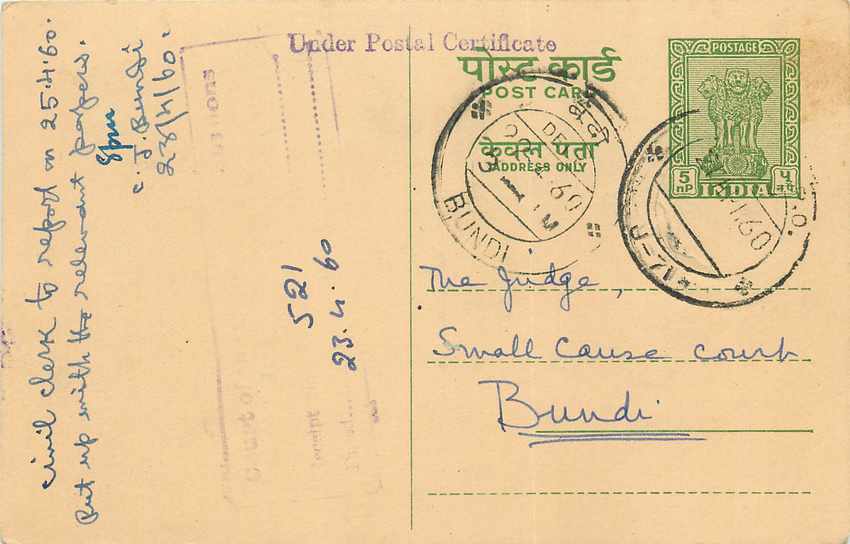 Under Postal Certificate
पोस्ट कार्ड
POST CARD
केवल पता
ADDRESS ONLY
POSTAGE
5
nP
INDIA
५
न.पै.
BUNDI
बूंदी
60
The Judge,
Small Cause Court
Bundi
Civil Clerk to report on 25.4.60.
Put up with the relevant papers.
C. J. Bundi
23/4/60.
521
23.4.60